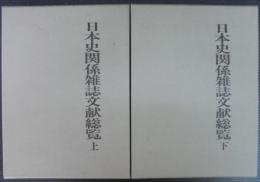 日本史関係雑誌文献総覧 上
日本史関係雑誌文献総覧 下